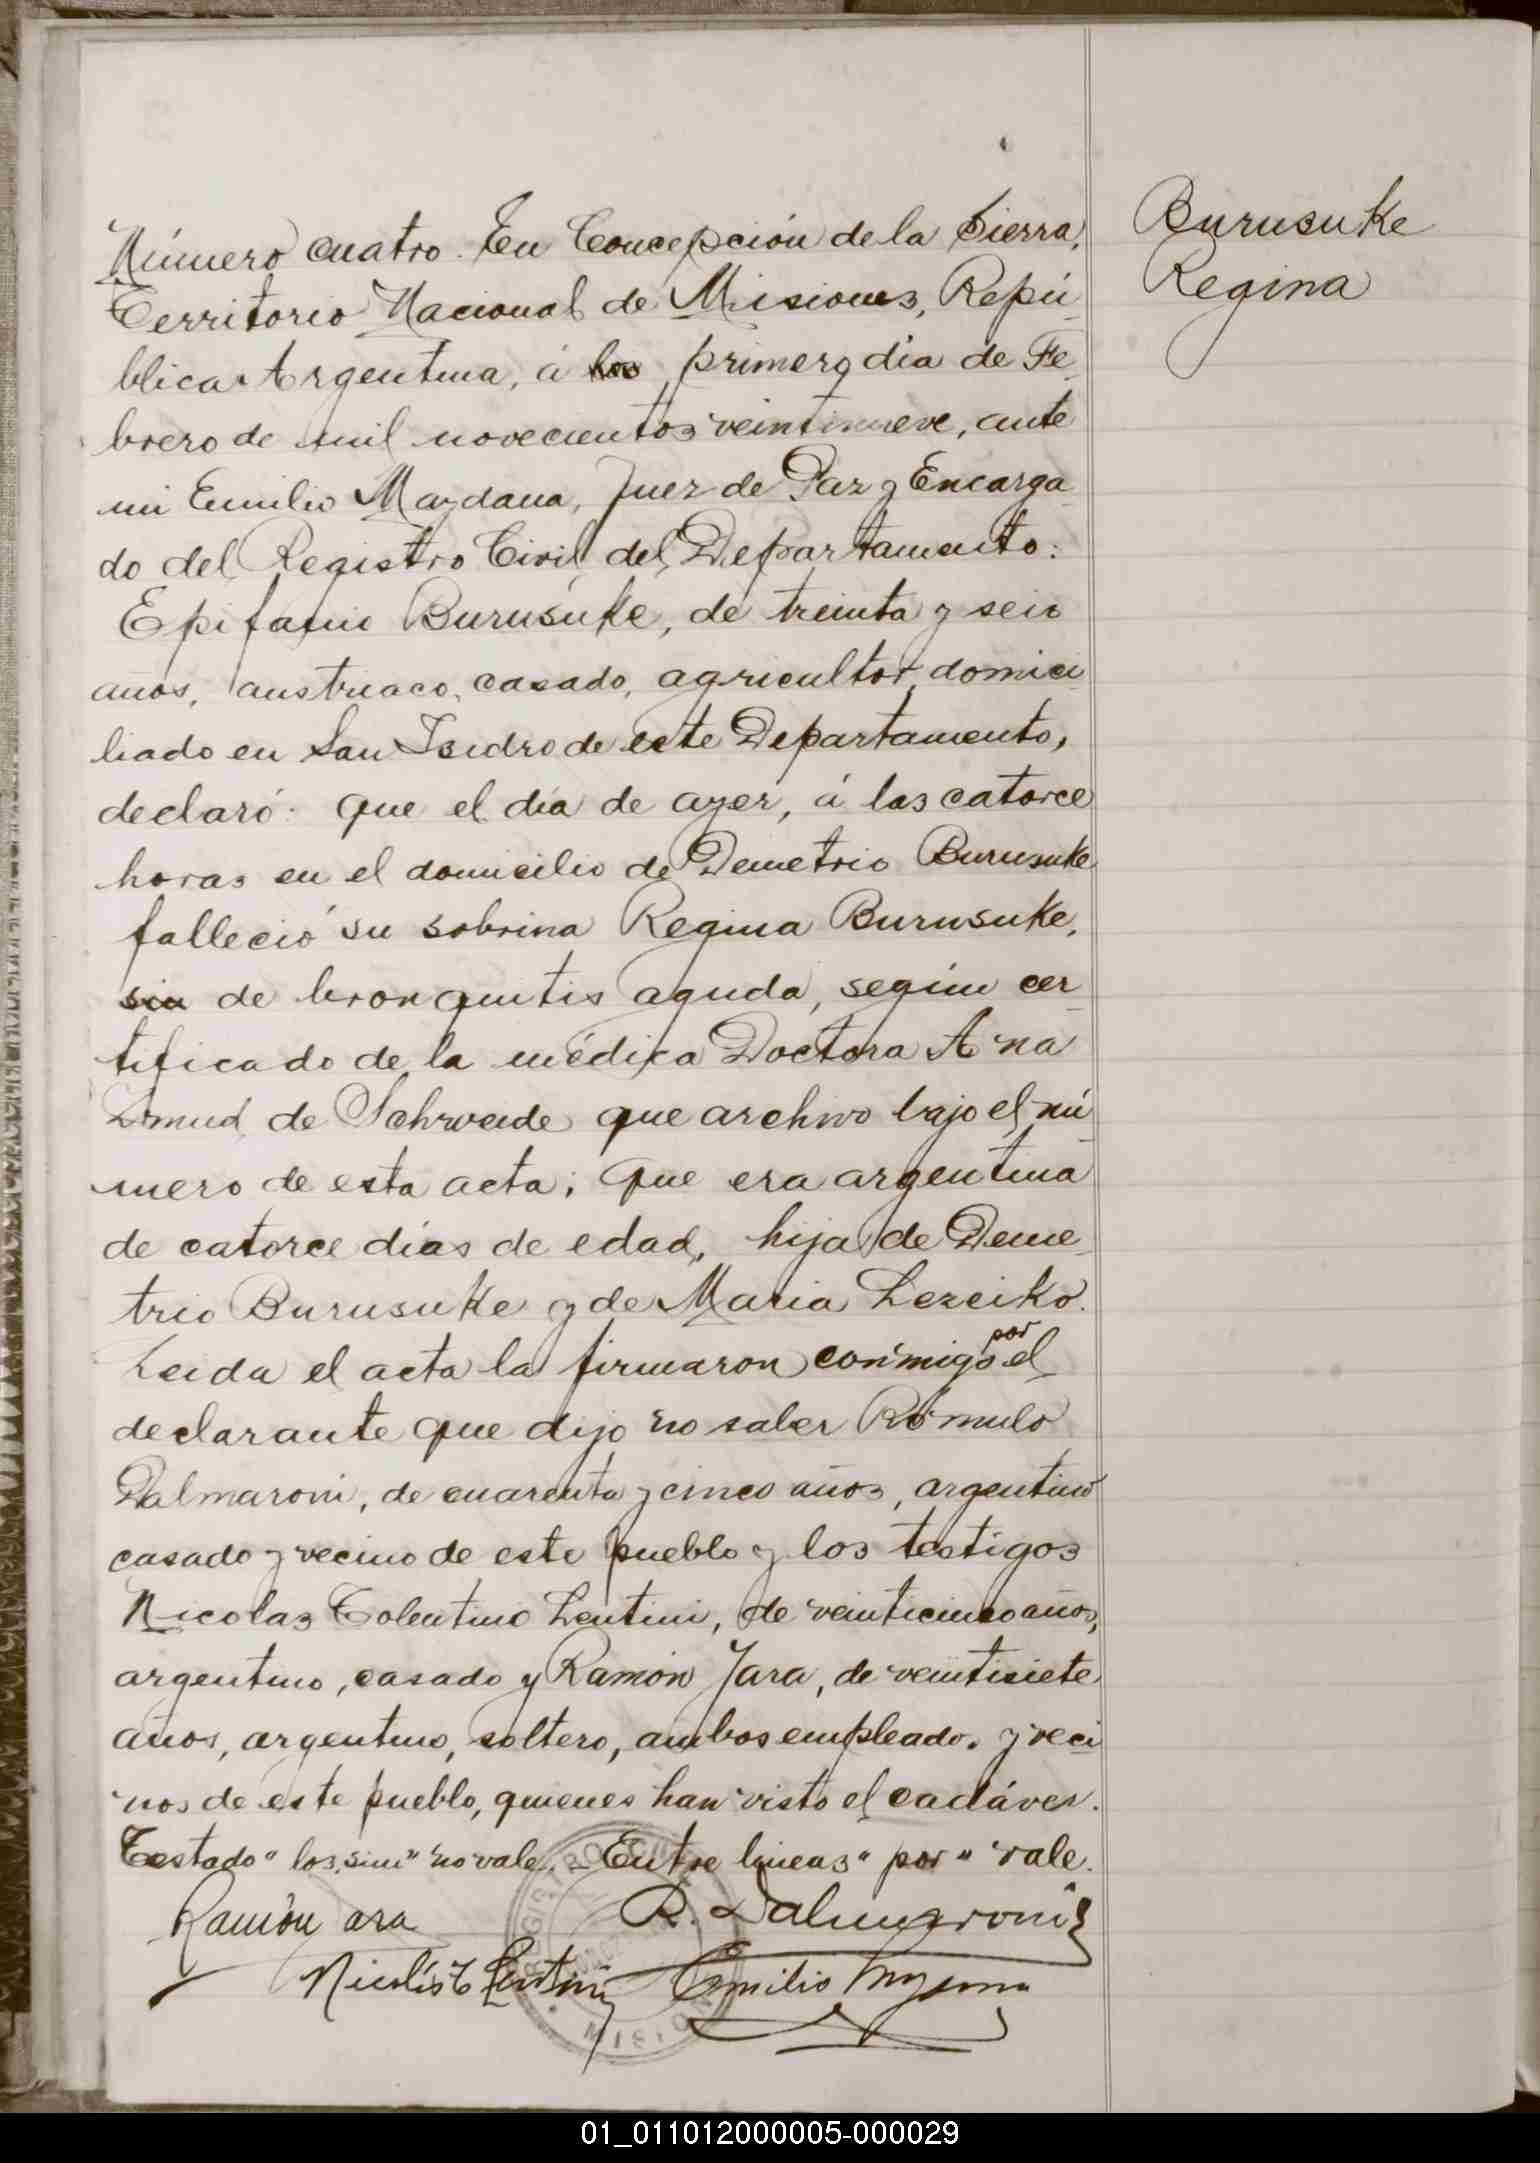 Burusuke
Regina
Número cuatro. En Concepción de la Sierra,
Territorio Nacional de Misiones, Repú
blica Argentina, á los primero día de Fe
brero de mil novecientos veintinueve, ante
mi Emilio Mazdana, Juez de Paz y Encarga
do del Registro Civil del Departamento:
Epifanio Burusuke, de treinta y seis
años, austriaco, casado, agricultor, domici
liado en San Isidro de este Departamento,
declaró: Que el día de ayer, á las catorce
horas en el domicilio de Demetrio Burusuke
falleció su sobrina Regina Burusuke,
sin de bronquitis aguda, según cer
tificado de la médica Doctora Ana
de Schweide que archivo bajo el nú
mero de esta acta; Que era argentina
de catorce días de edad, hija de Deme
trio Burusuke y de Maria Lezciko.
Leida el acta la firmaron conmigo por el
declarante que dijo no saber Rómulo
Dalmaroni, de cuarenta y cinco años, argentino
casado y vecino de este pueblo y los testigos
Nicolas Tolentino Lentini, de veinticinco años,
argentino, casado y Ramón Jara, de veintisiete
años, argentino, soltero, ambos empleados y veci
nos de este pueblo, quienes han visto el cadáver.
Testado "los, sin" no vale. - Entre lineas "por" vale.
Ramón Jara
R. Dalmaroni
Nicolás T. Lentini
Emilio
REGISTRO CIVIL
MISIONES
01_011012000005-000029